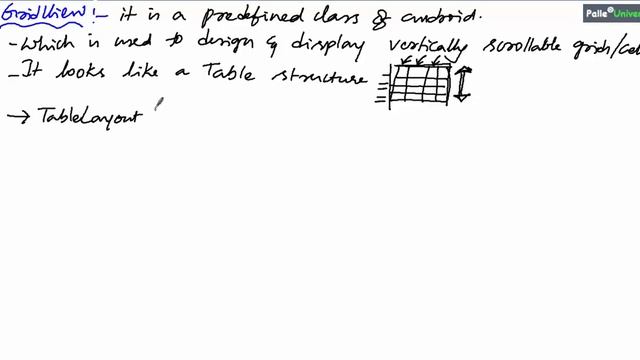 Palle Univer
GridView:- it is a predefined class of android.
- which is used to design & display vertically scrollable grids/cel
- It looks like a Table structure
→ TableLayout